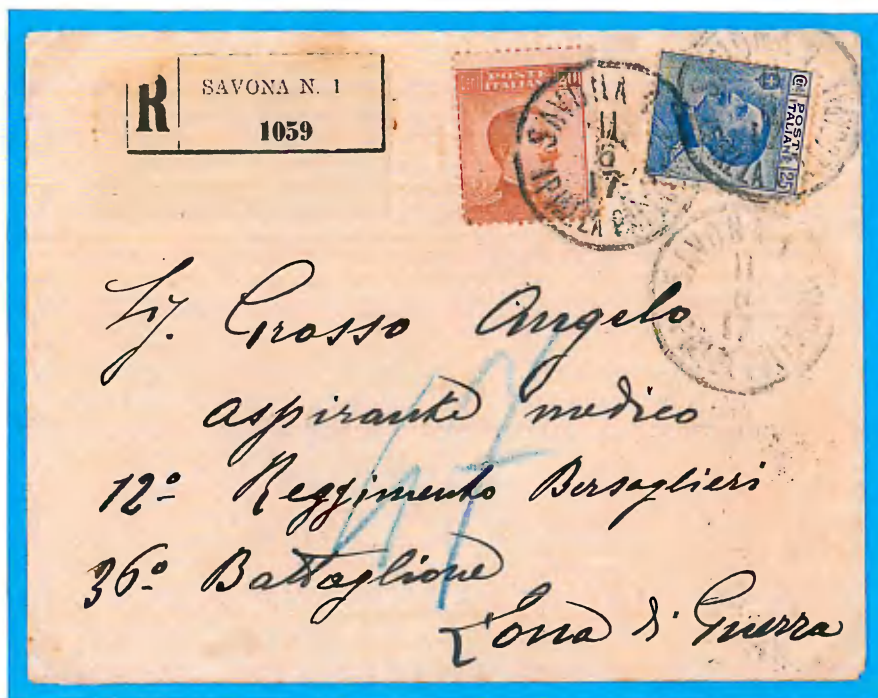 R SAVONA N. 1
1059
POSTE ITALIANE 20
POSTE ITALIANE 25
SAVONA
11
6
17
SAVONA
Sig. Grosso Angelo
aspirante medico
12º Reggimento Bersaglieri
36º Battaglione
Zona di Guerra
47